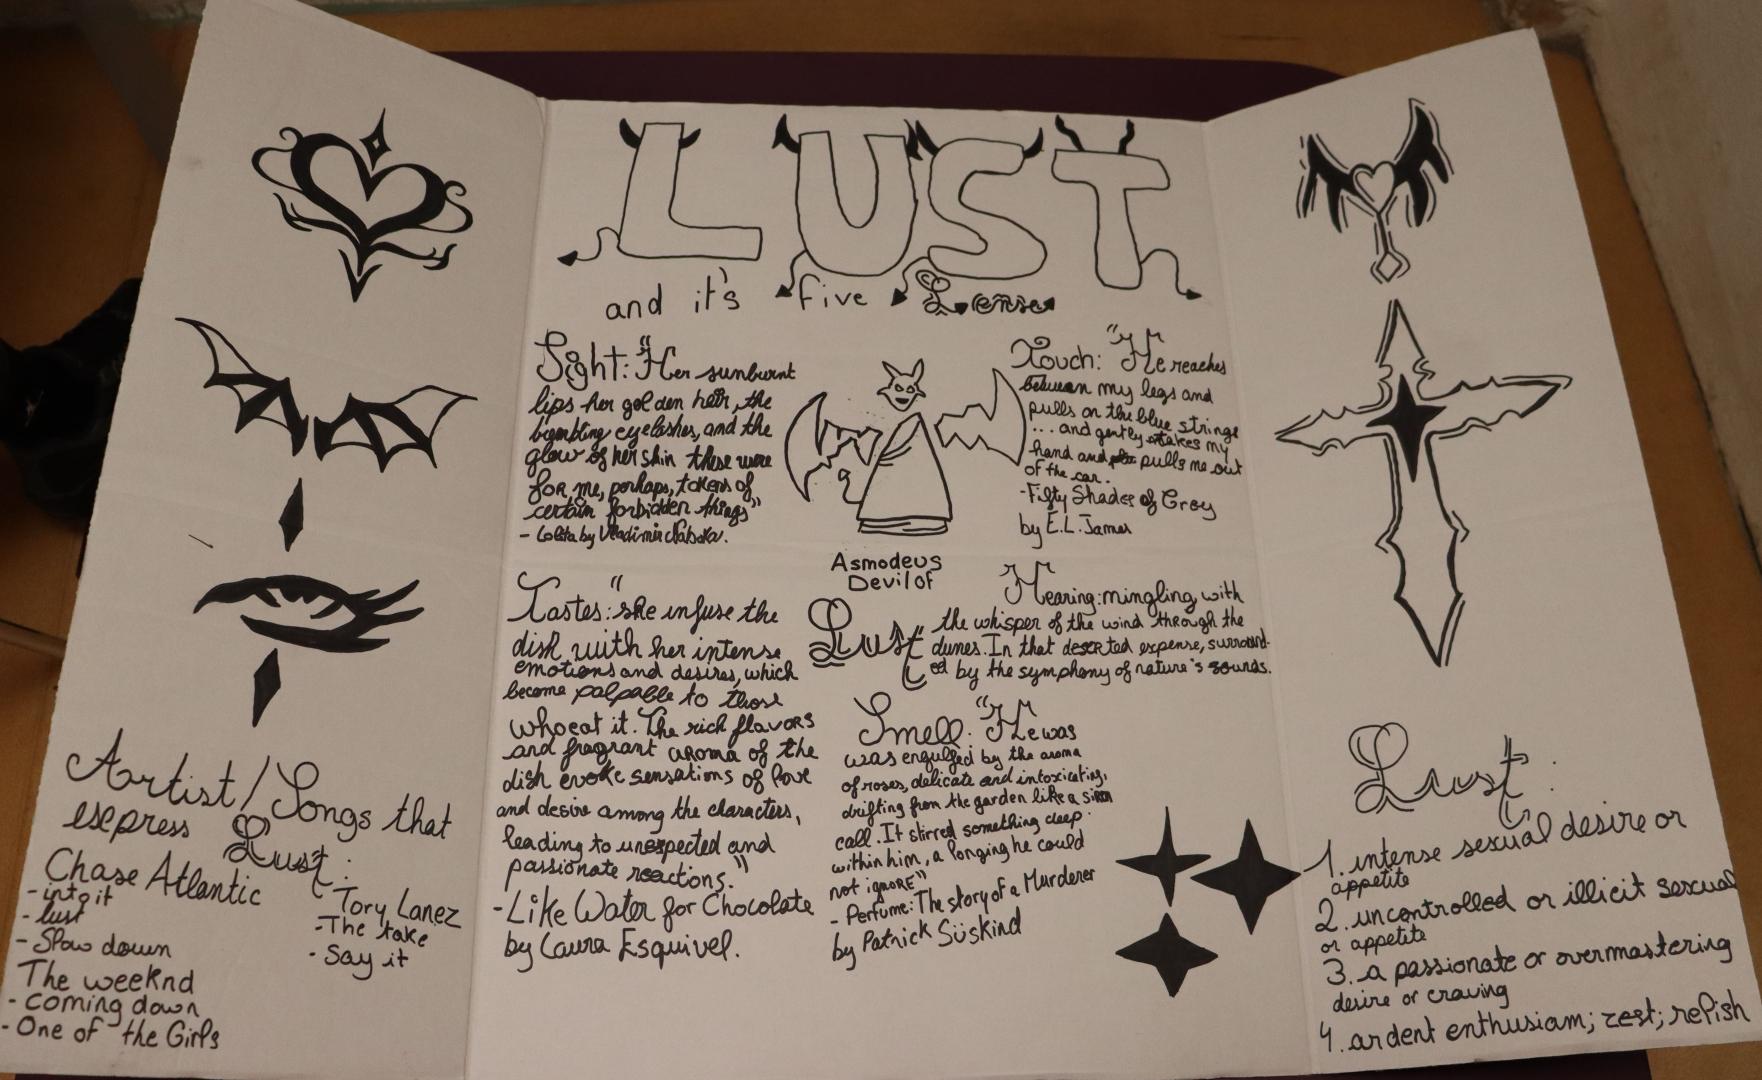 LUST
and it's five Lense
Sight: "Her sunburnt
lips her golden hair, the
trembling eyelashes, and the
glow of her skin these were
for me, perhaps, tokens of
certain forbidden things"
- Lolita by Vladimir Nabokov.
Touch: "He reaches
between my legs and
pulls on the blue strings
... and gently takes my
hand and pulls me out
of the car.
-Fifty Shades of Grey
by E.L. James
Asmodeus
Devil of
Lust
Tastes: "she infuse the
dish with her intense
emotions and desires, which
become palpable to those
who eat it. The rich flavors
and fragrant aroma of the
dish evoke sensations of love
and desire among the characters,
leading to unexpected and
passionate reactions."
-Like Water for Chocolate
by Laura Esquivel.
Hearing: mingling with
the whisper of the wind through the
dunes. In that deserted expense, surround-
ed by the symphony of nature's sounds.
Smell: "He was
was engulfed by the aroma
of roses, delicate and intoxicating,
drifting from the garden like a siren
call. It stirred something deep
within him, a longing he could
not ignore"
- Perfume: The story of a Murderer
by Patrick Süskind
Artist/Songs that
express Lust:
Chase Atlantic
- into it
- lust
- Slow down
The weeknd
- coming down
- One of the Girls
Tory Lanez
-The take
- Say it
Lust:
1. intense sexual desire or
appetite
2. uncontrolled or illicit sexual
or appetite
3. a passionate or overmastering
desire or craving
4. ardent enthusiam; zest; relish